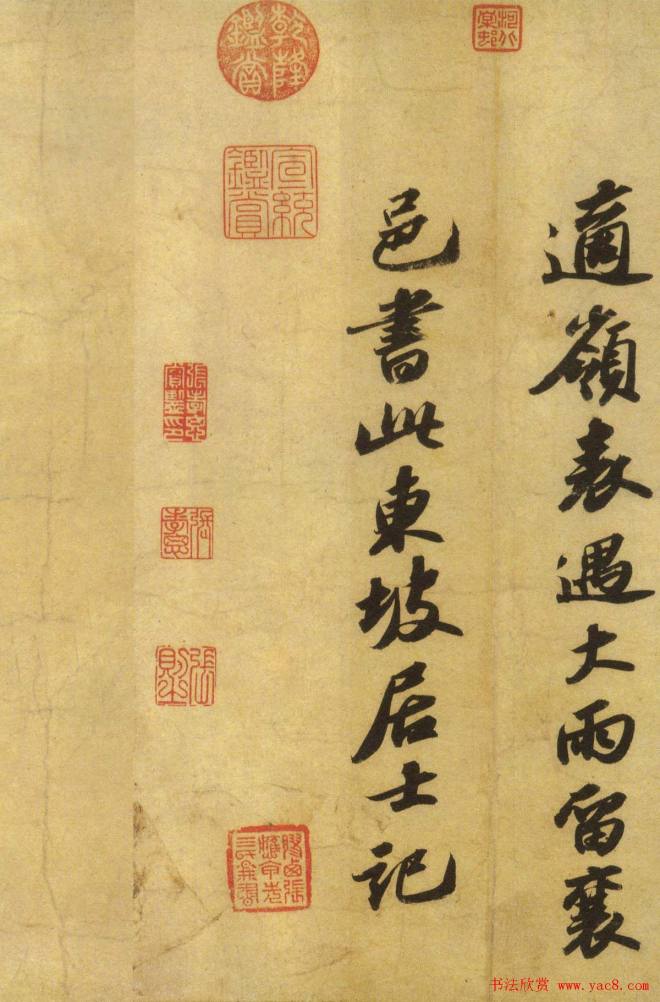 適嶺表遇大雨留襄
邑書此東坡居士記
乾隆鑑賞
宣統鑑賞
书法欣赏 www.yac8.com